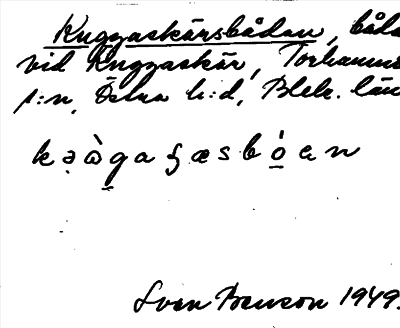 Kuggaskärsbådan, båda
vid Kuggaskär, Torhamns
s:n, Östra h:d, Blek. län
Sven Benson 1949.